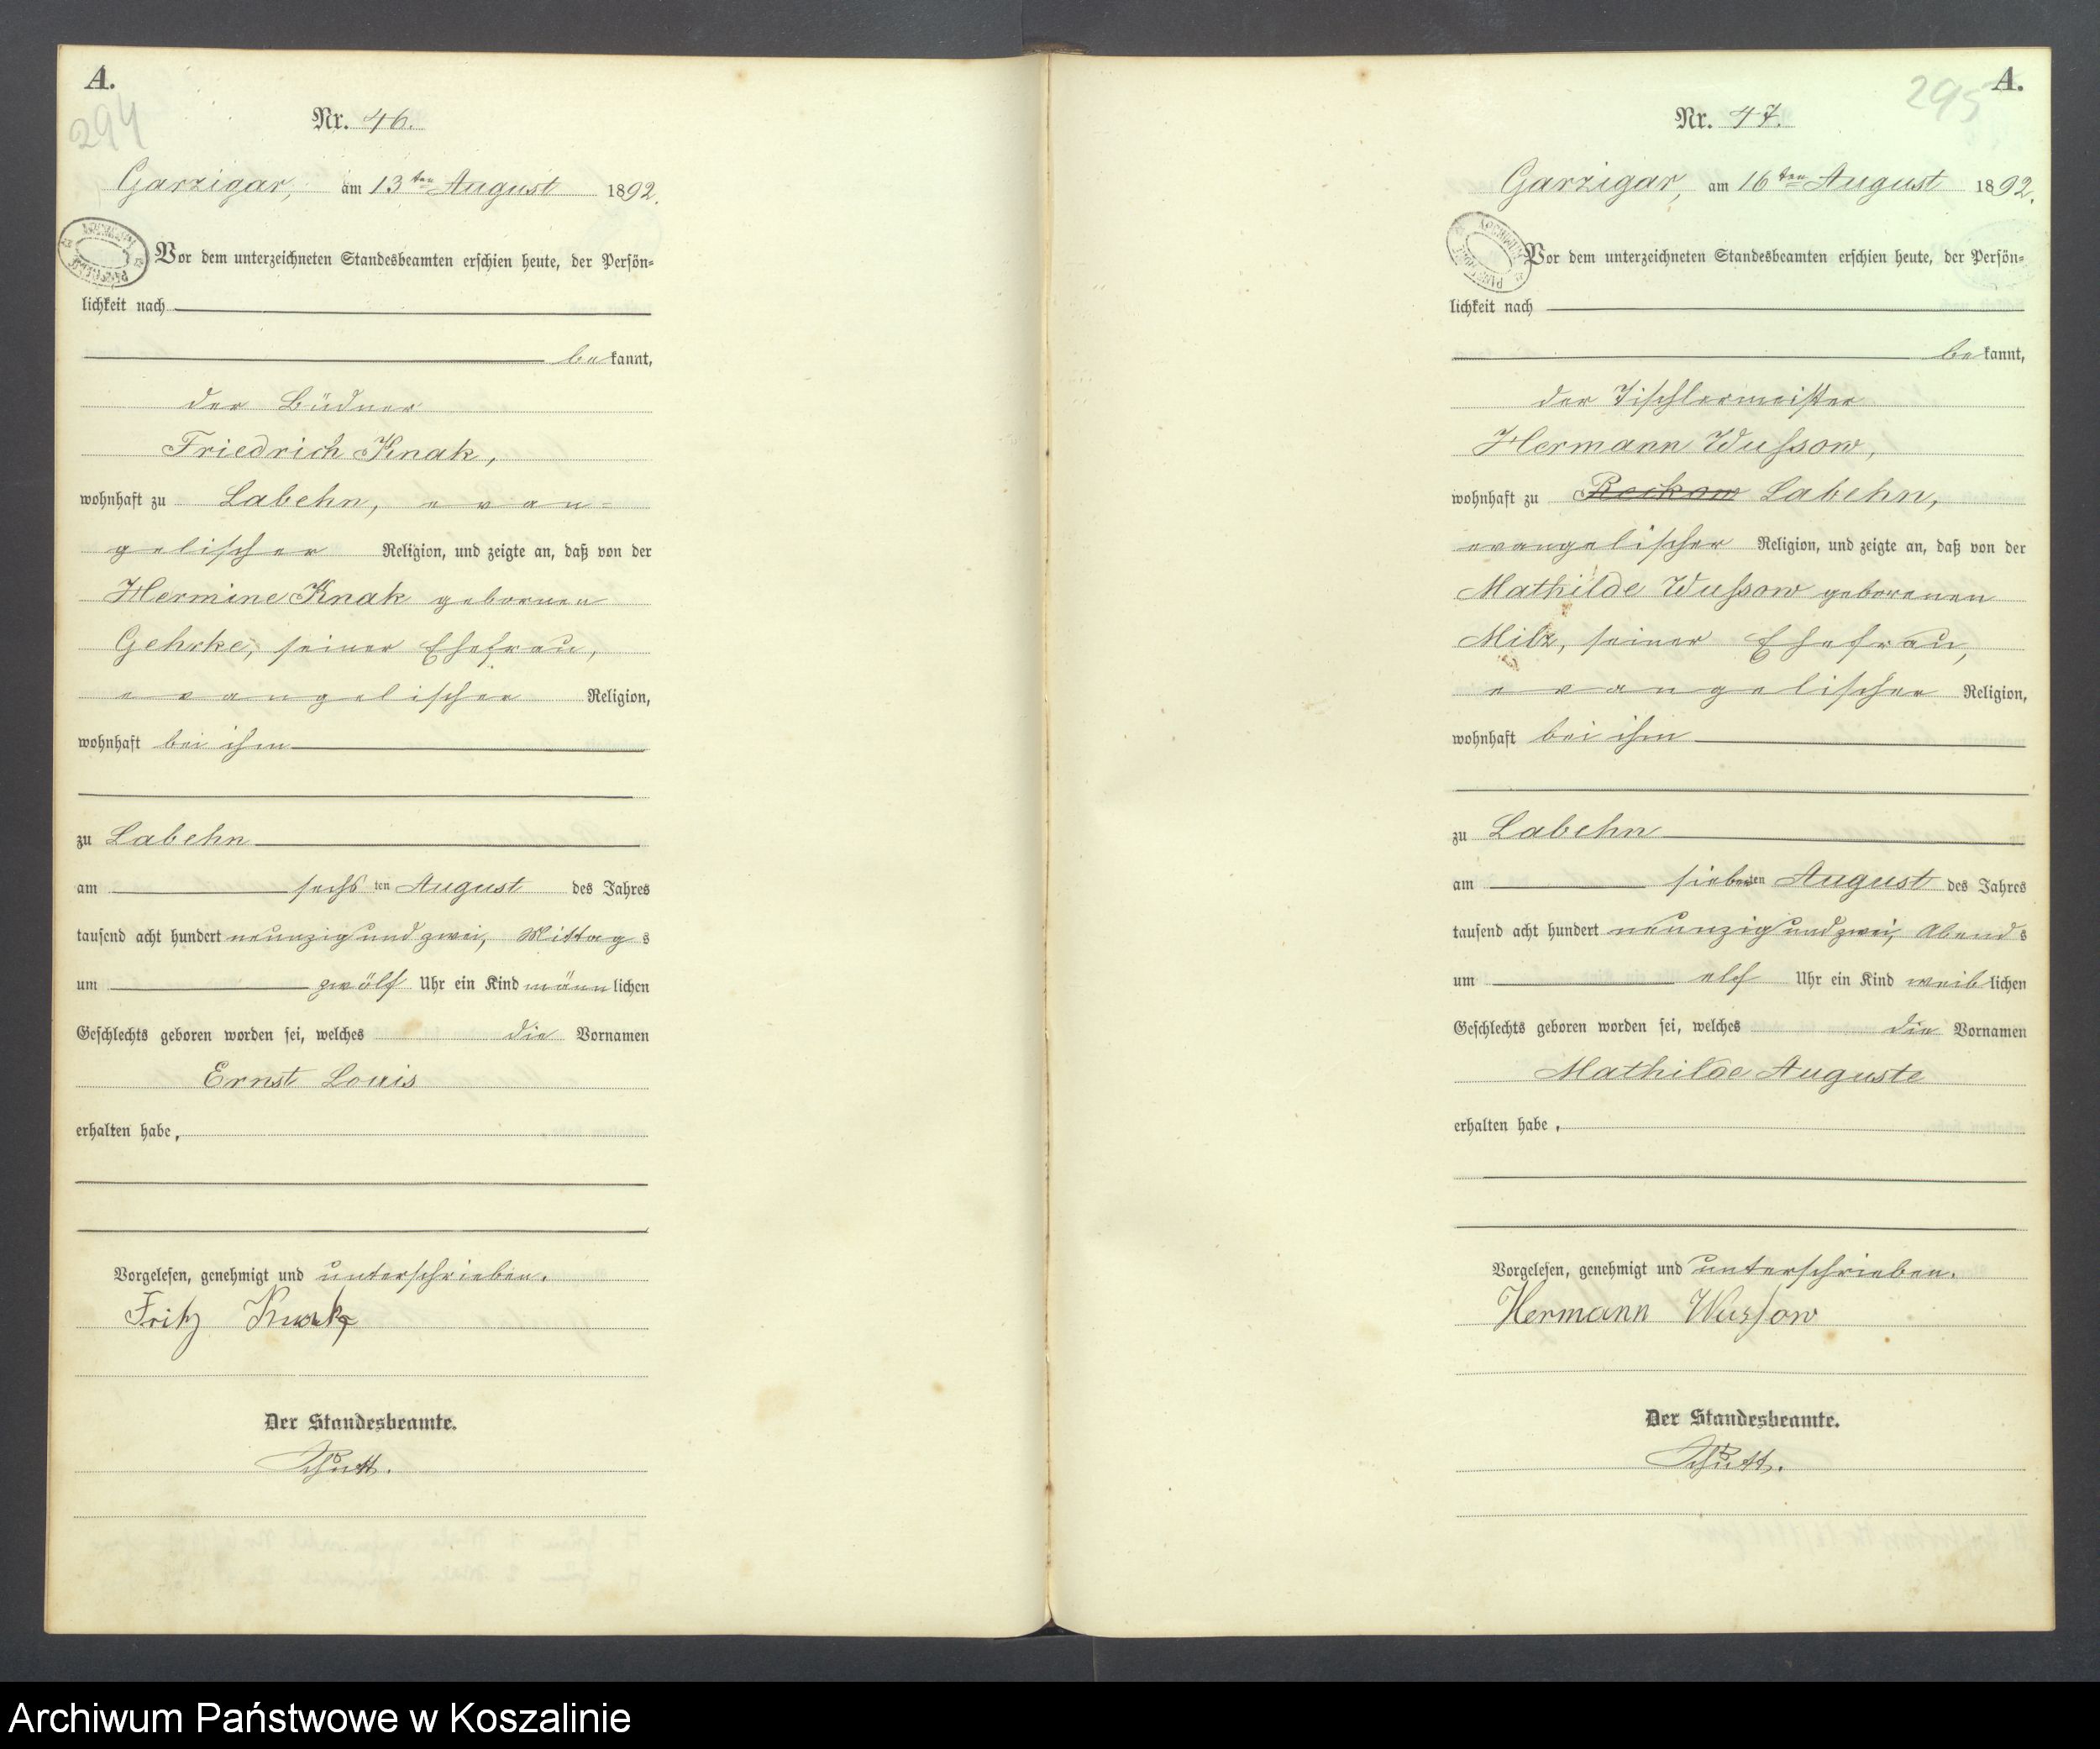 A.
294
Nr. 46.
Garzigar, am 13ten August 1892.
Vor dem unterzeichneten Standesbeamten erschien heute, der Persön-
lichkeit nach
bekannt,
der Büdner
Friedrich Knak,
wohnhaft zu Labehn, evan-
gelischer Religion, und zeigte an, daß von der
Hermine Knak gebornen
Gehrke, seiner Ehefrau,
evangelischer Religion,
wohnhaft bei ihm
zu Labehn
am sechsten August des Jahres
tausend acht hundert neunzig und zwei, Mittags
um zwölf Uhr ein Kind männlichen
Geschlechts geboren worden sei, welches die Vornamen
Ernst Louis
erhalten habe,
Vorgelesen, genehmigt und unterschrieben.
Fritz Knak
Der Standesbeamte.
Schütt.
A.
295
Nr. 47.
Garzigar, am 16ten August 1892.
Vor dem unterzeichneten Standesbeamten erschien heute, der Persön-
lichkeit nach
bekannt,
der Tischlermeister
Hermann Wussow,
wohnhaft zu Reckow Labehn,
evangelischer Religion, und zeigte an, daß von der
Mathilde Wussow geborenen
Milz, seiner Ehefrau,
evangelischer Religion,
wohnhaft bei ihm
zu Labehn
am siebenten August des Jahres
tausend acht hundert neunzig und zwei, Abends
um elf Uhr ein Kind weiblichen
Geschlechts geboren worden sei, welches die Vornamen
Mathilde Auguste
erhalten habe,
Vorgelesen, genehmigt und unterschrieben.
Hermann Wussow
Der Standesbeamte.
Schütt.
Archiwum Państwowe w Koszalinie